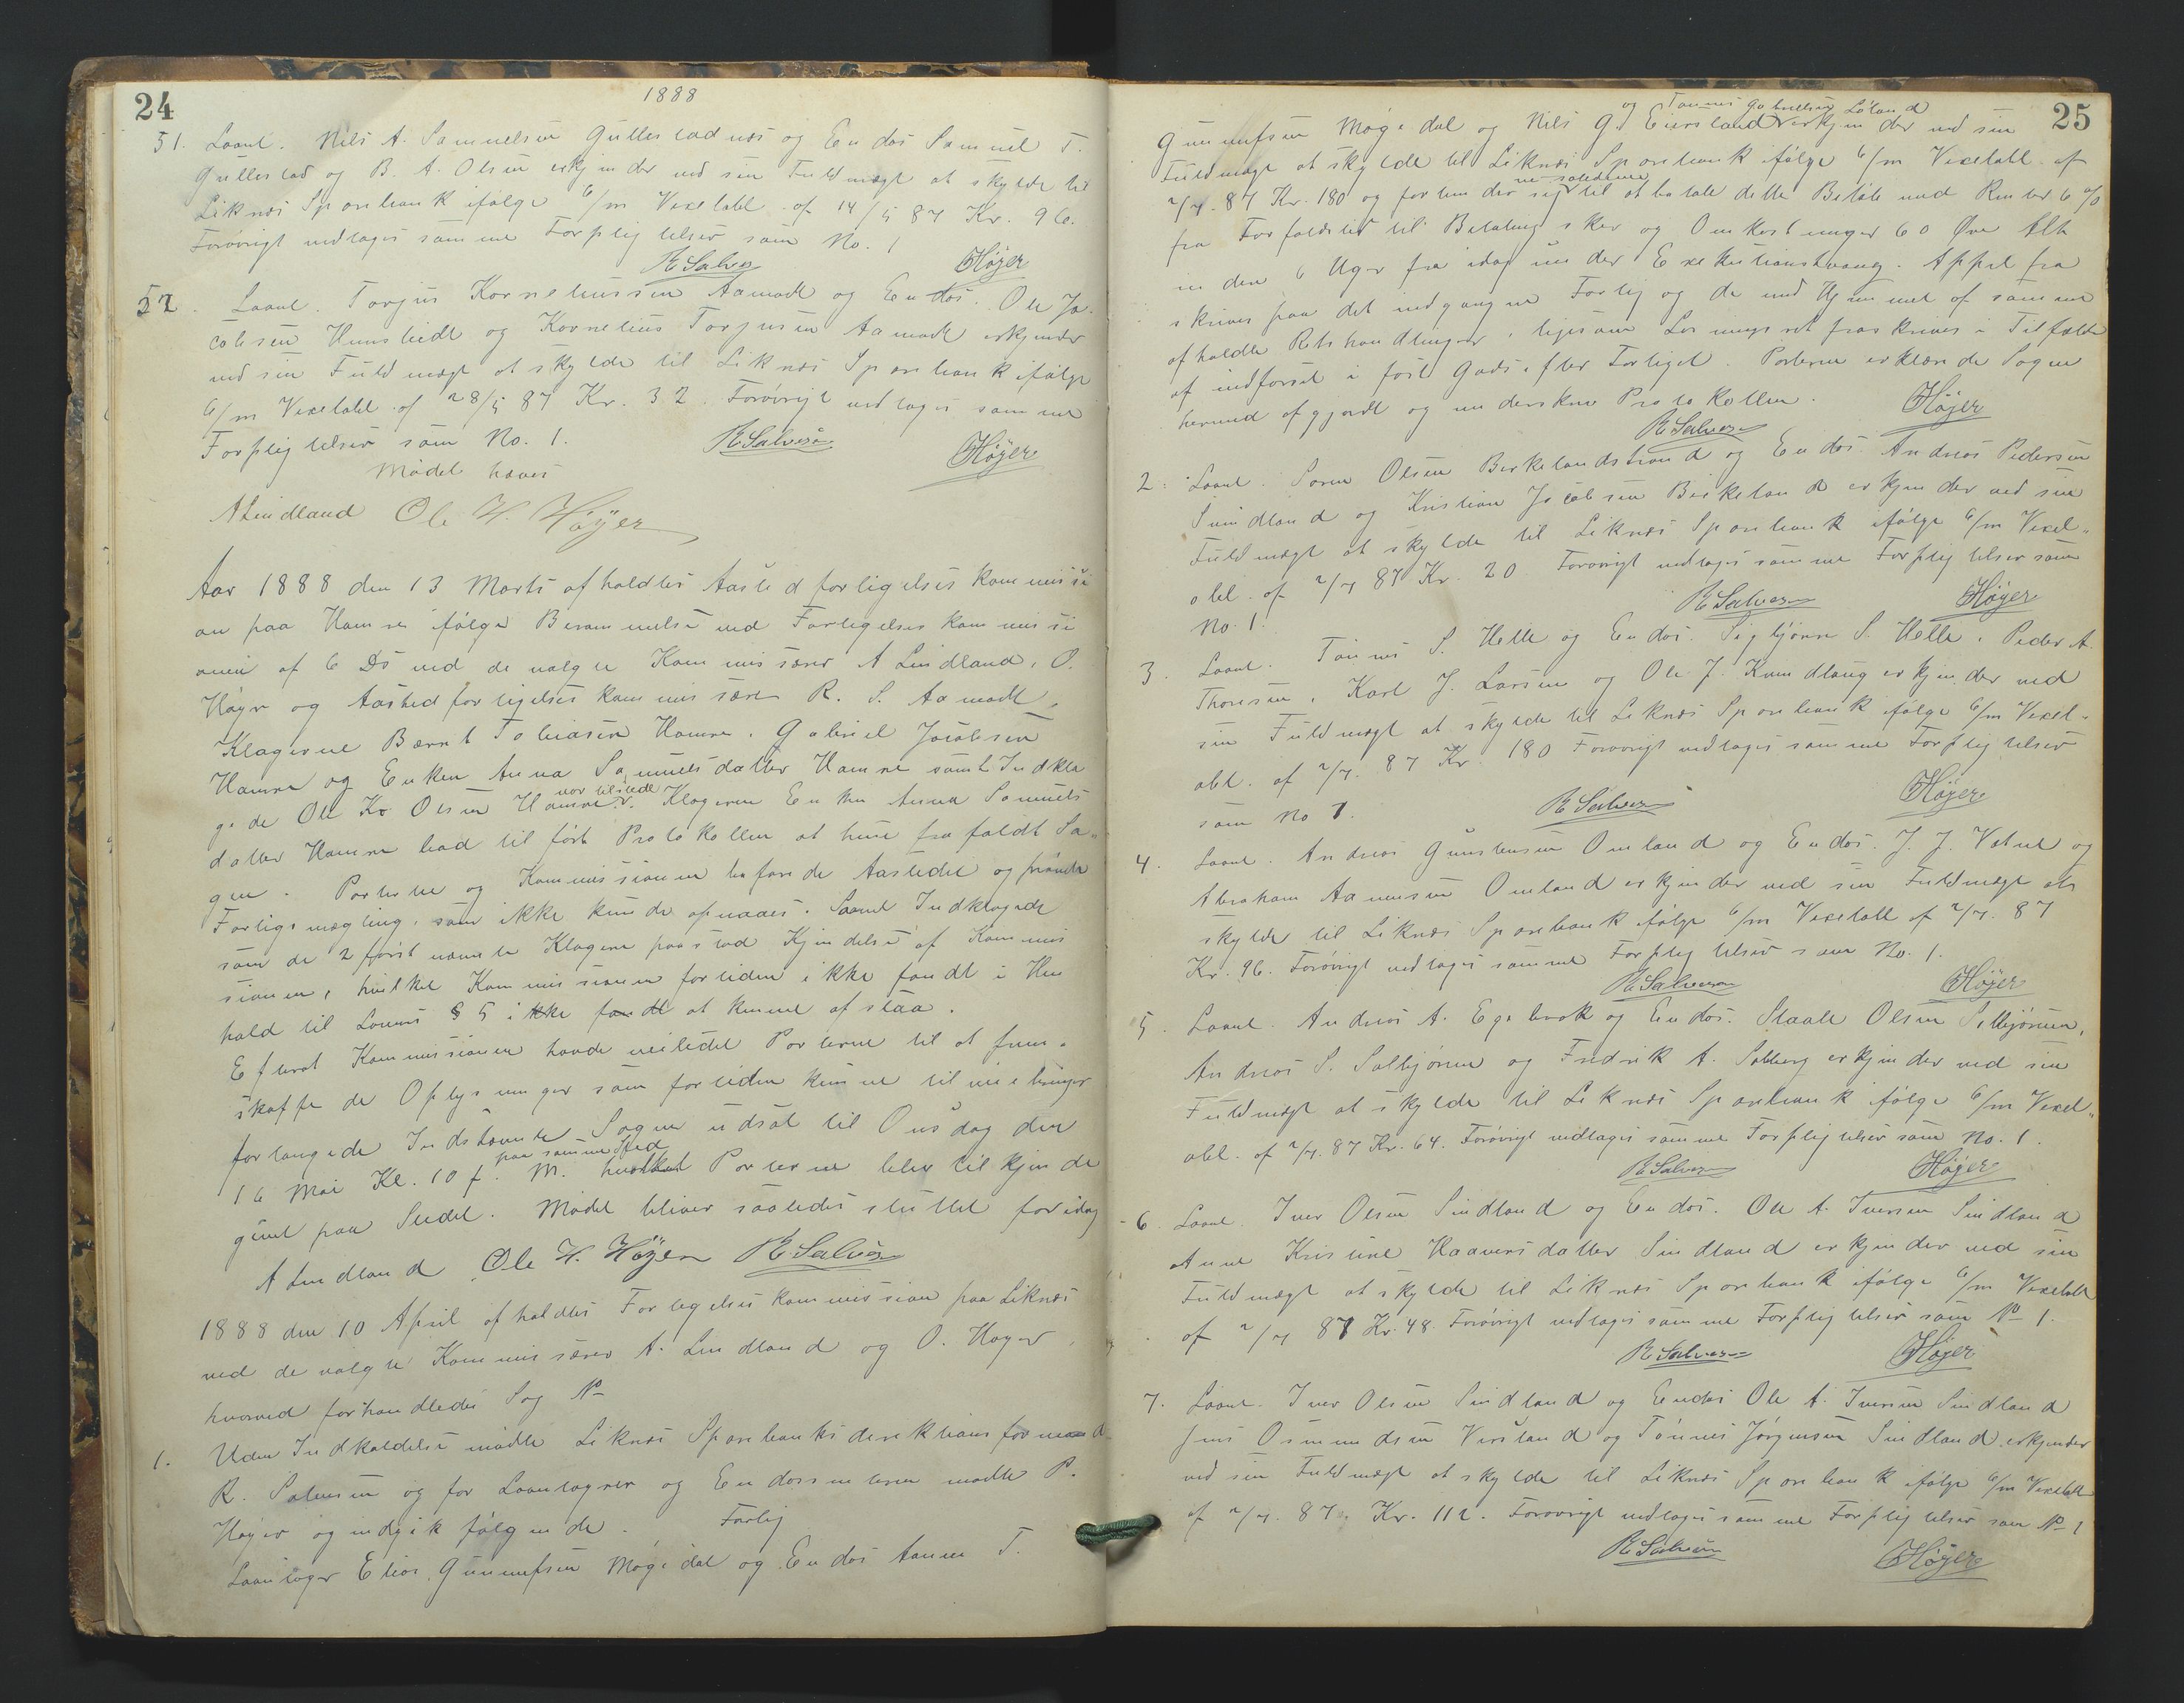 24
1888
51. Laant. Nils A. Samuelsen Gullestadnes og Endos Samuel T.
Gullestad og B. A. Olsen erkjender ved sin Fuldmægt at skylde til
Liknes Sparebank ifølge 6/m Vexelobl. af 14/5 87 Kr. 96.
Forøvrigt vedtages samme Forpligtelser som No. 1
R Salves Höyer
52. Laant. Torjus Korneliussen Aamodt og Endos. Ole Ja-
cobsen Hunsbedt og Kornelius Torjusen Aamodt erkjender
ved sin Fuldmægt at skylde til Liknes Sparebank ifølge
6/m Vexelobl. af 28/5 87 Kr. 32. Forøvrigt vedtages samme
Forpligtelser som No. 1.
R Salvesen Höyer
Mödet hæves
A Lindland Ole H. Höyer
Aar 1888 den 13 Marts afholdtes Aastedforligelses kommissi
on paa Hamre ifølge Berammelse ved Forligelses kommissi
onen af 6 Ds ved de valgte Kommissærer A Lindland, O.
Höyer og Aastedforligelses kommissær R. S. Aamodt.
Klagerne Bernt Tobiasen Hamre. Gabriel Jacobsen
Hamre og Enken Anna Samuelsdatter Hamre samt Indkla
gede Ole Kr Olsen Hamre var tilstede. Klageren Enken Anna Samuels
datter Hamre bad til ført Protokollen at hun frafaldt Sa-
gen. Parterne og Kommissionen befarede Aastedet og prøvede
Forligsmægling, som ikke kunde opnaaes. Saavel Indklagede
som de 2 først nævnte Klagere paastod Kjendelse af Kommis
sionen, hvilket Kommissionen fortiden ikke fandt i Hen
hold til Lovens § 5 ikke fandt at kunne afstaa.
Efterat Kommissionen havde veiledet Parterne til at frem-
skaffe de Oplysninger som fortiden kunne tilveiebringes
forlangede Indstævnte Sagen udsat til Onsdag den
16 Mai Kl. 10 f. M. paa samme Sted hvilket Parterne blev tilkjende
givet paa Stedet. Mødet bliver saaledes sluttet for idag
A Lindland Ole H. Höyer R Salves
1888 den 10 April afholdtes Forligelseskommission paa Liknes
ved de valgte Kommissærer A. Lindland og O. Høyer,
hvorved forhandledes Sag No
1. Uden Indkaldelse mødte Liknes Sparebanks direktions formand
R. Salvesen og for Laantageren og Endossenterne mødte P.
Høyer og indgik følgende. Forlig
Laantager Elias Gunnufsen Møgedal og Endos Aanen T.
25
Gunnufsen Møgedal og Nils G. Eiersland og Tønnes Gabrielsen Løland erkjender ved sin
Fuldmægt at skylde til Liknes Sparebank ifølge 6/m Vexelobl. af
2/7. 87 Kr. 180 og forbinder sig ne solidarne til at betale dette Beløb med Renter 6 %
fra Forfaldstid til Betaling sker og Omkostninger 60 Øre Alt
inden 6 Uger fra idag under Exekutionstvang. Appel fra
skrives paa det indgaaede Forlig og de med Hjemmel af samme
afholdte Retshandlinger, ligesom Løsningsret fraskrives i Tilfælde
af indførsel i fast Gods efter Forliget. Parterne erklærede Sagen
hermed afgjordt og underskrev Protokollen.
R Salves Höyer
2. Laant. Søren Olsen Birkelandstrand og Endos. Andreas Pedersen
Svindland og Kristian Jacobsen Birkeland erkjender ved sin
Fuldmægt at skylde til Liknes Sparebank ifølge 6/m Vexel-
obl. af 2/7 87 Kr. 20 Forøvrigt vedtages samme Forpligtelser som
No. 1.
R Salves Höyer
3. Laant. Tønnes S. Helle og Endos. Sigbjørn S. Helle, Peder A.
Thoresen, Karl J. Larsen og Ole J. Kvindlaug erkjender ved
sin Fuldmægt at skylde til Liknes Sparebank ifølge 6/m Vexel-
obl. af 2/7. 87 Kr. 180 Forøvrigt vedtages samme Forpligtelser
som No 1.
R Salves Höyer
4. Laant. Andreas Gunstensen Omland og Endos. J. J. Vatne og
Abraham Aanensen Omland erkjender ved sin Fuldmægt at
skylde til Liknes Sparebank ifølge 6/m Vexelobl af 2/7. 87
Kr. 96. Forøvrigt vedtages samme Forpligtelser som No. 1.
R Salvesen Höyer
5. Laant. Andreas A. Egebrok og Endos. Staale Olsen Solbjørnen,
Andreas S. Solbjørnen og Fredrik A. Solberg erkjender ved sin
Fuldmægt at skylde til Liknes Sparebank ifølge 6/m Vexel-
obl. af 2/7. 87 Kr. 64. Forøvrigt vedtages samme Forpligtelser som No. 1.
R Salves Höyer
6. Laant. Iver Olsen Sindland og Endos. Ole A. Iversen Sindland
Anne Kristine Haaversdatter Sindland erkjender ved sin
Fuldmægt at skylde til Liknes Sparebank ifølge 6/m Vexelobl
af 2/7 87 Kr. 48. Forøvrigt vedtages samme Forpligtelser som No 1.
R Salves Höyer
7. Laant. Iver Olsen Sindland og Endos Ole A. Iversen Sindland
Jens Osmundsen Versland og Tønnes Jørgensen Sindland erkjender
ved sin Fuldmægt at skylde til Liknes Sparebank ifølge 6/m Vexelobl
af 2/7. 87. Kr. 112. Forøvrigt vedtages samme Forpligtelser som No 1
R Salvesen Höyer